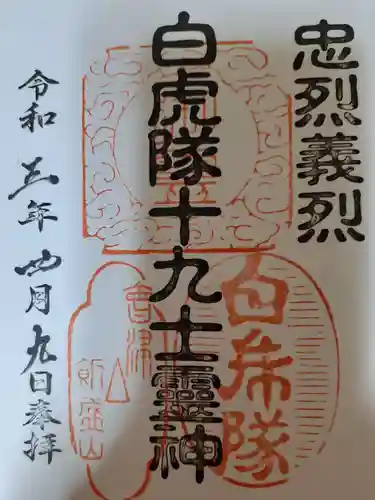 忠烈義烈
白虎隊十九士靈神
令和三年四月九日奉拝
白虎隊
會津
飯盛山